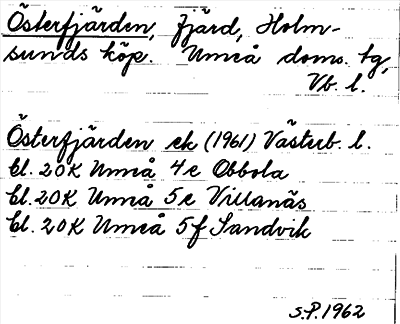 Österfjärden, fjärd, Holm-
sunds köp. Umeå doms. tg,
Vb. l.
Österfjärden ek (1961) Västerb. l.
Bl. 20K Umeå 4e Obbola
Bl. 20K Umeå 5e Villanäs
Bl. 20K Umeå 5f Sandvik
S.P. 1962